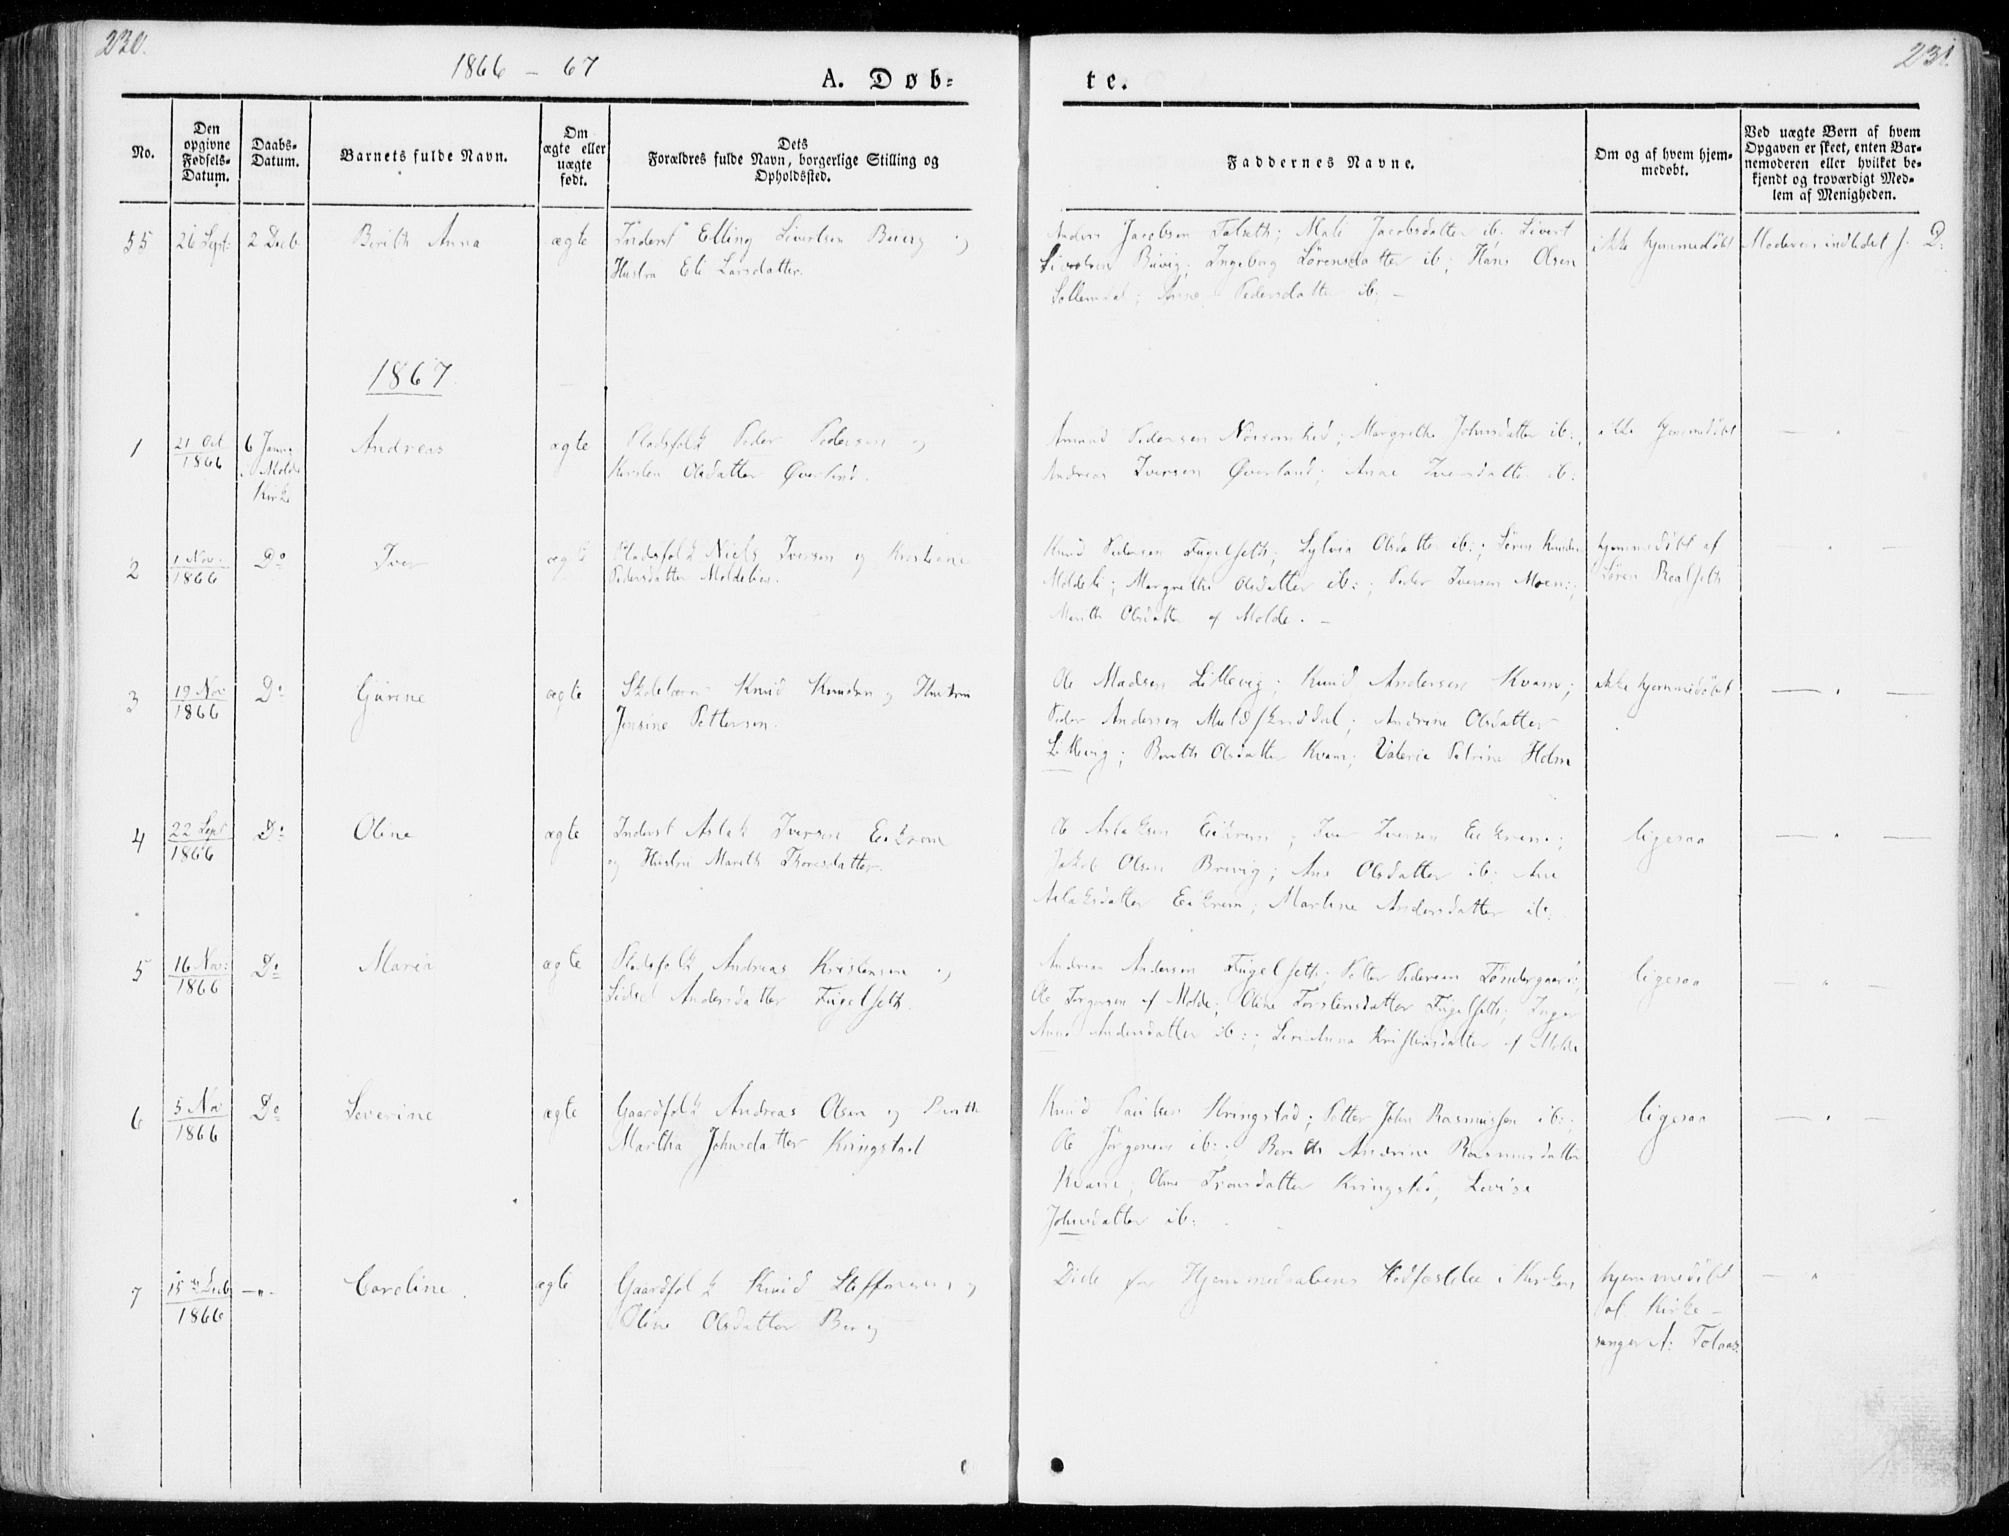 230.
1866 - 67
A. Døb-
te.
231.
No.
Den
opgivne
Fødsels-
Datum.
Daabs-
Datum.
Barnets fulde Navn.
Om
ægte eller
uægte
født.
Dets
Forældres fulde Navn, borgerlige Stilling og
Opholdssted.
Faddernes Navne.
Om og af hvem hjem-
medøbt.
Ved uægte Børn af hvem
Opgaven er skeet, enten Bar-
nemoderen eller hvilket be-
kjendt og troværdigt Med-
lem af Menigheden.
55
26 Sept:
2 Decb
Berith Anna
ægte
Inderst Elling Sivertsen Buvig og
Hustru Eli Larsdatter.
Anders Jacobsen Talseth; Mali Jacobsdatter ib: Sivert
Sivertsen Buvig; Ingeborg Sørensdatter ib; Hans Olsen
Anne Pedersdatter ib; -
ikke hjemmedøbt
Moderen indledet s. D:
1867
1
21 Oct
1866
6 Janua
i Molde
Kirke
Andreas
ægte
Pladsfolk Peder Pedersen og
Kirsten Olsdatter Øverland.
Amund Pedersen; Margrethe Johnsdatter ib:;
Andreas Iversen Øverland; Anne Iversdatter ib:
ikke hjemmedøbt
— " —
2
1 Nov:
1866
Do
Iver
ægte
Pladsfolk Niels Iversen og Kristiane
Pedersdatter Moldelien.
Knud Pedersen Fugelseth; Sylvia Olsdatter ib:; Søren Knudsen
Moldeli; Margrethe Olsdatter ib:; Peder Iversen Moen;
Marith Olsdatter af Molde. -
hjemmedøbt af
Søren Roalseth
— " —
3
19 Nov
1866
Do
Gjurine
ægte
Skolelærer Knud Knudsen og Hustru
Jensine Pettersen.
Ole Madsen Lillevig; Knud Andersen Kvam;
Peder Andersen; Andrine Olsdatter
Lillevig; Berith Olsdatter Kvam; Valerie Petrine Holm
ikke hjemmedøbt
— " —
4
22 Sept
1866
Do
Oline
ægte
Inderst Aslak Iversen Eikrem
og Hustru Marith Thoresdatter.
Ole Aslaksen Eikrem; Iver Iversen Eikrem;
Jakob Olsen Brevig; Ane Olsdatter ib: Ane
Aslaksdatter Eikrem; Martine Andersdatter ib:
ligesaa
— " —
5
16 Nov:
1866
Do
Maria
ægte
Pladsfolk Andreas Kristensen og
Lidse Andersdatter Fugelseth.
Andreas Andersen Fugelseth; Petter Pedersen Tøndergaard;
Ole Torgersen af Molde; Oline Torstensdatter Fugelseth; Inger
Anna Andersdatter ib:; Seri Anna Kristensdatter af Molde
ligesaa
— " —
6
5 Nov
1866
Do
Severine
ægte
Gaardfolk Andreas Olsen og Berith
Martha Johnsdatter Kringstad
Knud Paulsen Kringstad; Petter John Rasmussen ib:;
Ole Jørgensen ib:; Berith Andrine Rasmusdatter
Kvam; Oline Tronsdatter Kringstad, Lovise
Johnsdatter ib:
ligesaa
— " —
7
15de Decb
1866
—"—
Caroline.
ægte
Gaardfolk Knud Steffensen og
Oline Olsdatter
Døde før Hjemmedaabens Stadfæstelse i Kirken
hjemmedøbt
af Kirke-
sanger A: Tolaas.
— "